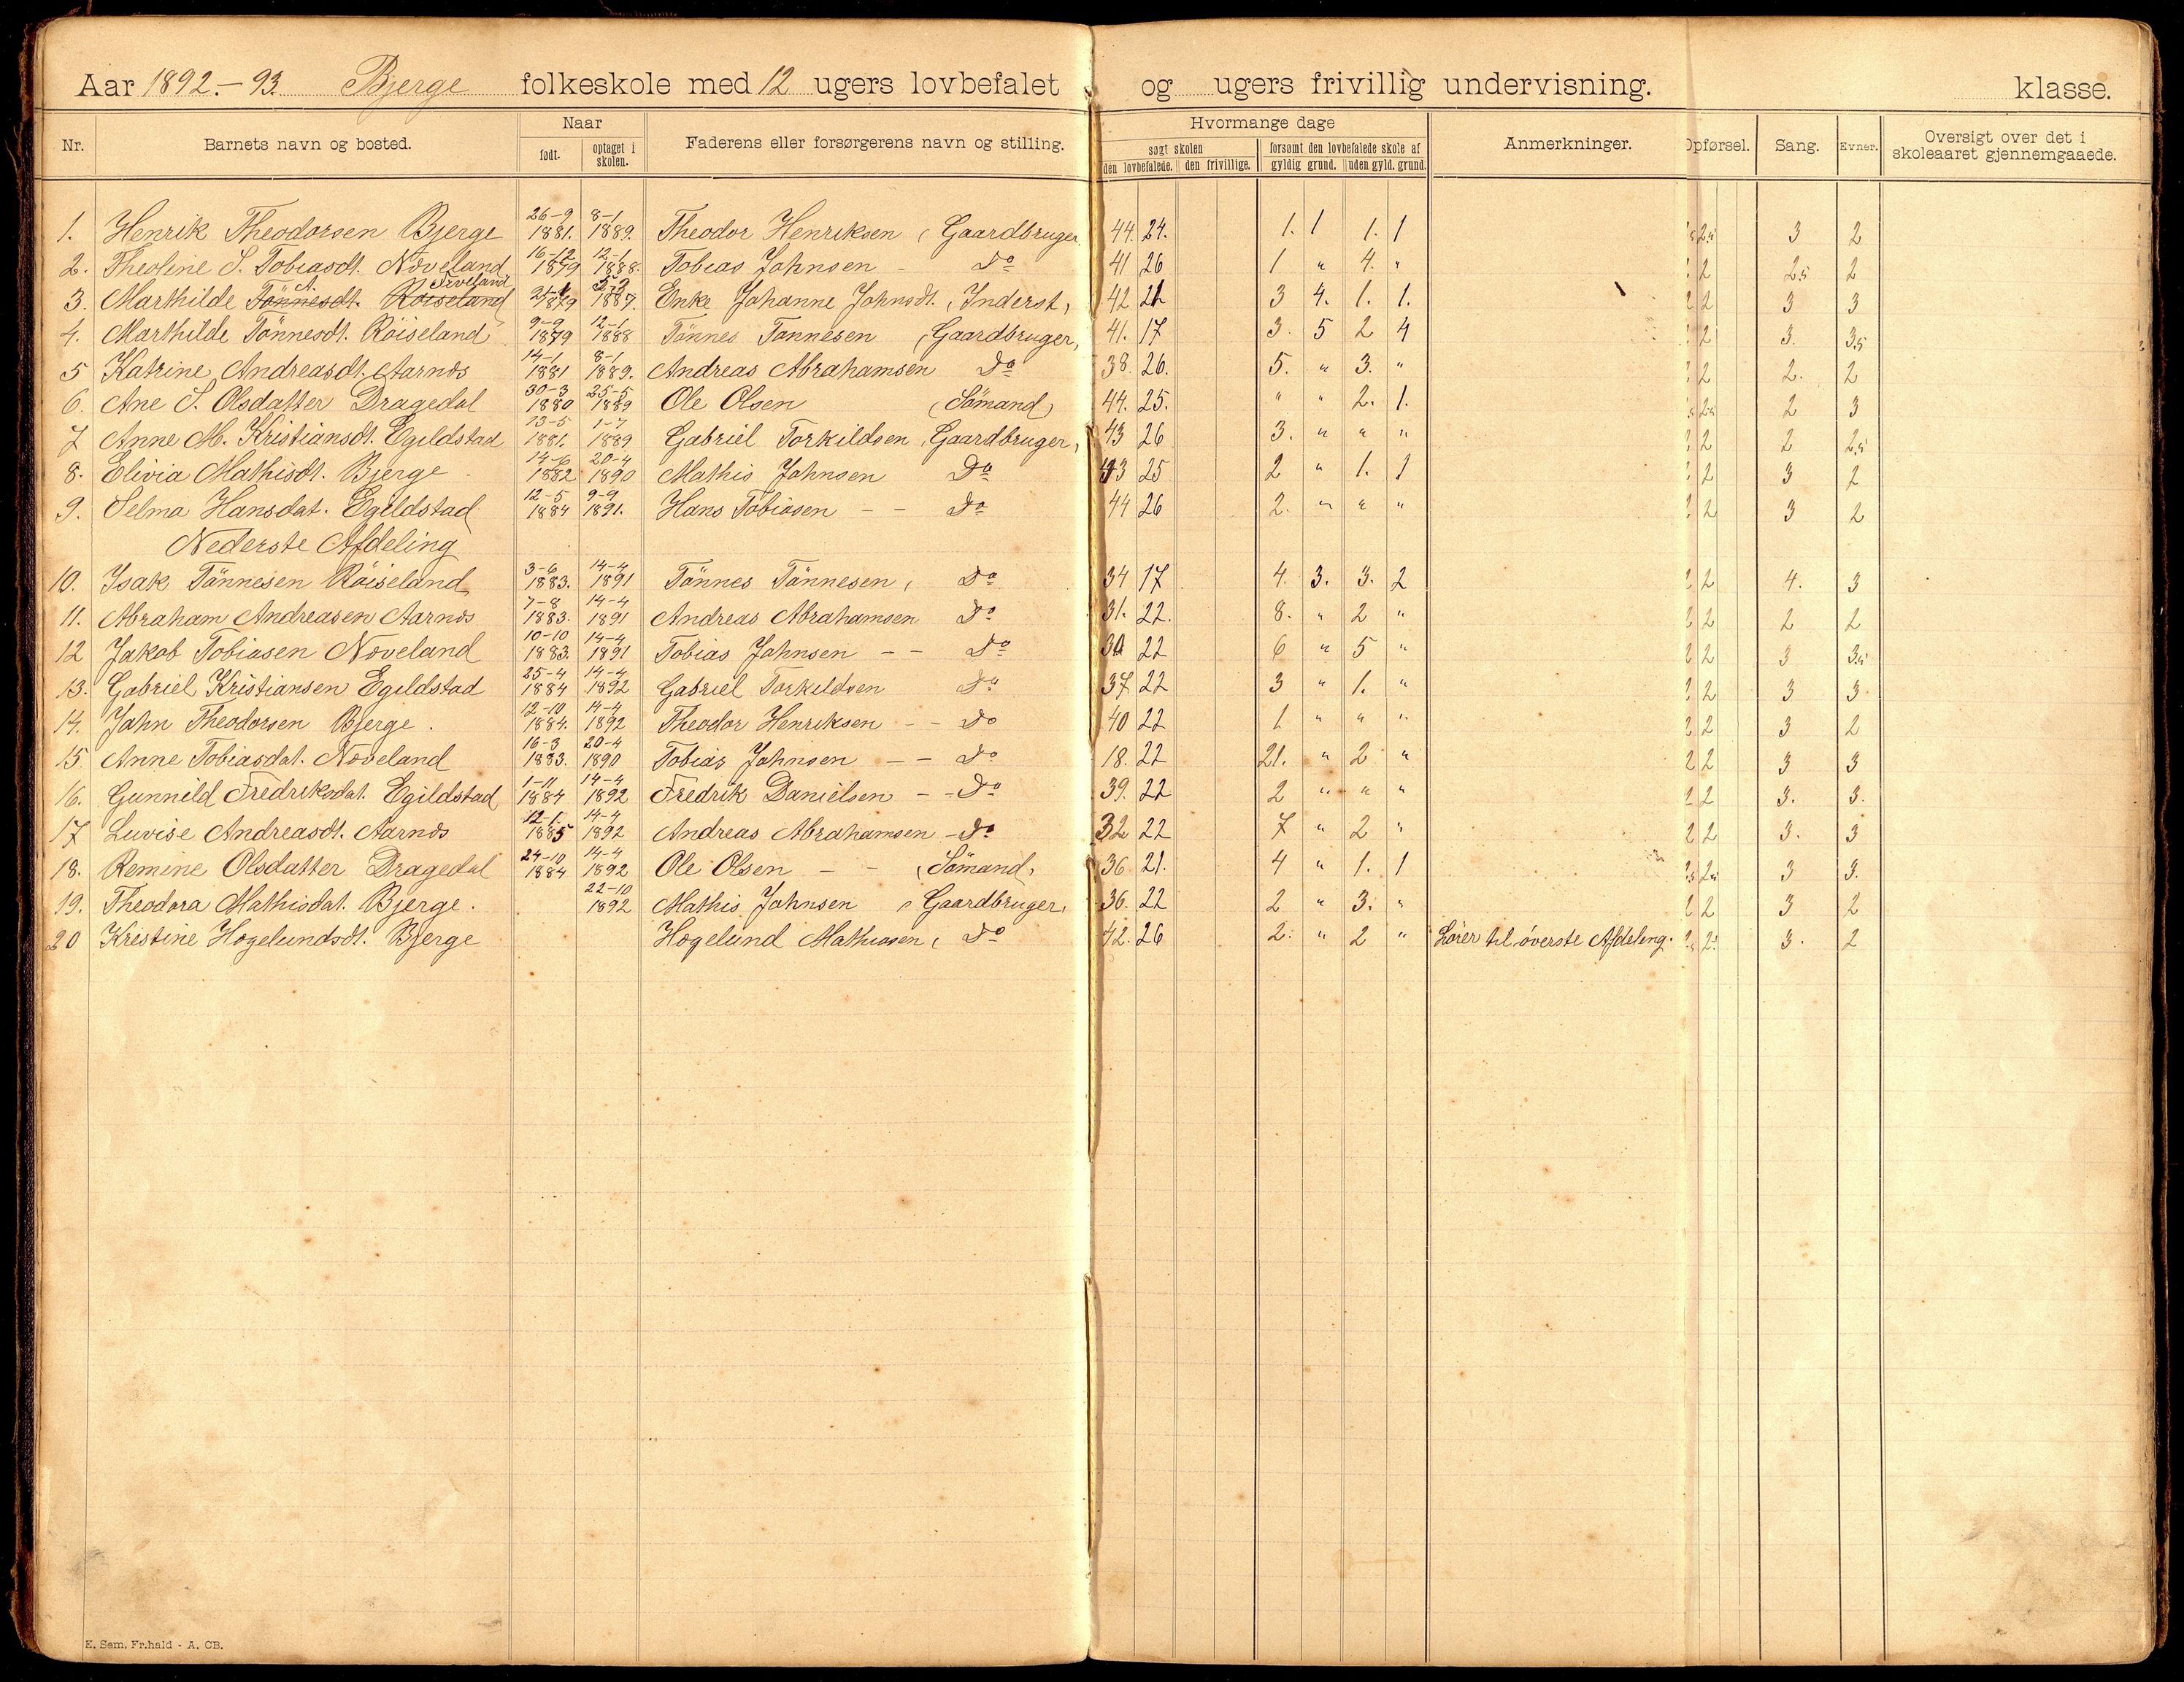 Aar 1892.-93. Bjerge folkeskole med 12 ugers lovbefalet og ugers frivillig undervisning. klasse.
Nr. Barnets navn og bosted. Naar født. optaget i skolen. Faderens eller forsørgerens navn og stilling. Hvormange dage søgt skolen den lovbefalede. den frivillige. forsømt den lovbefalede skole af gyldig grund. uden gyld. grund. Anmerkninger. Opførsel. Sang. Evner. Oversigt over det i skoleaaret gjennemgaaede.
1. Henrik Theodorsen Bjerge 26-9 1881. 8-1 1889. Theodor Henriksen, Gaardbruger 44. 24. 1. 1 1. 1 2,5 3 2
2. Theoline S. Tobiasdt. Noveland 16-12 1879 12-1 1888. Tobias Johnsen - Do 41 26 1 " 4. " 2 2 2,5 2
3. Marthilde Tönnesdt. Röiseland 1879 1887. Enke Johanne Johnsdt. (Inderst) 42 21 3 4. 1. 1. 2 2 3 3
4. Marthilde Tönnesdt. Röiseland 9-9 1879 12-1 1888 Tönnes Tönnesen (Gaardbruger) 41. 17 3. 5 2 4 2 2 3. 3,5
5 Katrine Andreasdt. Aarnøs 14-1 1881 8-1 1889. Andreas Abrahamsen Do 38. 26. 5. " 3. " 2 2 2. 2
6. Ane S. Olsdatter Dragedal 30-3 1880 25-5 1889 Ole Olsen (Sömand) 44. 25. " " 2. 1. 2,5 2 3
7 Anne M. Kristiansdt. Egildstad 13-5 1881. 1-7 1889 Gabriel Torkildsen (Gaardbruger) 43 26 3. " " " 2 2 2 2,5
8. Elivia Mathisdt. Bjerge 14-6 1882 20-4 1890 Mathis Johnsen Do 43 25 2 " 1. 1 2 2 3 2
9. Selma Hansdat. Egildstad 12-5 1884 9-9 1891. Hans Tobiasen - - Do 44 26 2. " " " 2 2 3 2
Nederste Afdeling
10. Isak Tönnesen Röiseland 3-6 1883. 14-4 1891 Tönnes Tönnesen, Do 34 17 4. 3. 3. 2 2 2 4. 3
11. Abraham Andreasen Aarnøs 7-8 1883. 14-4 1891 Andreas Abrahamsen Do 31. 22. 8. " 2 " 2 2 2 2
12 Jakob Tobiasen Noveland 10-10 1883. 14-4 1891 Tobias Johnsen - - Do 30 22 6 " 5 " 2 2 3 3,5
13. Gabriel Kristiansen Egildstad 25-4 1884 14-4 1892 Gabriel Torkildsen Do 37 22 3 " 1. " 2 2 3 3
14. Jahn Theodorsen Bjerge. 12-10 1884. 14-4 1892 Theodor Henriksen - - Do 40 22 1 " " " 2 2 3 2
15 Anne Tobiasdat. Noveland 16-3 1883. 20-4 1890 Tobias Johnsen - - Do 18. 22 21. " 2 " 2 2 3 3
16. Gunnild Fredriksdat. Egildstad 1-11 1884 14-4 1892 Fredrik Danielsen - - Do 39. 22 2 " " " 2 2 3. 3.
17 Luvise Andreasdt. Aarnøs 12-1. 1885 14-4 1892 Andreas Abrahamsen - Do 32 22 7 " 2 " 2 2 3. 3
18. Remine Olsdatter Dragedal 24-10 1884 14-4 1892 Ole Olsen - - (Sömand) 36 21. 4 " 1. 1 2,5 3 3.
19. Theodora Mathisdat. Bjerge. 22-10 1892 Mathis Johnsen (Gaardbruger) 36. 22 2 " 3. " 2 2 3 2
20 Kristine Hogelundsdt. Bjerge Hogelund Mathiasen, Do 42. 26 2. " 2 " til överste Afdeling. 2 3. 2
E. Sem, Fr.hald - A. CB.